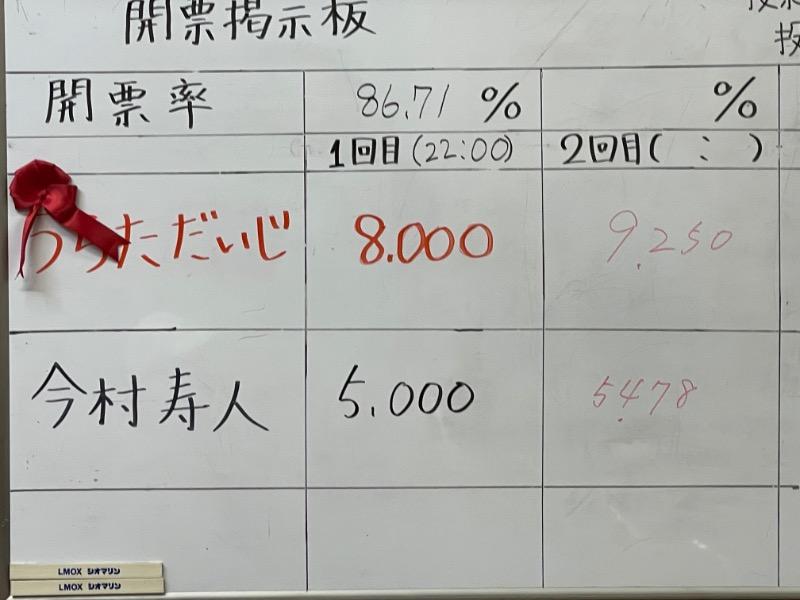 開票掲示板
開票率 86.71 % %
1回目(22:00) 2回目( : )
うらただいじ 8.000 9.250
今村寿人 5.000 5.478
LMOX シオマリン
LMOX シオマリン